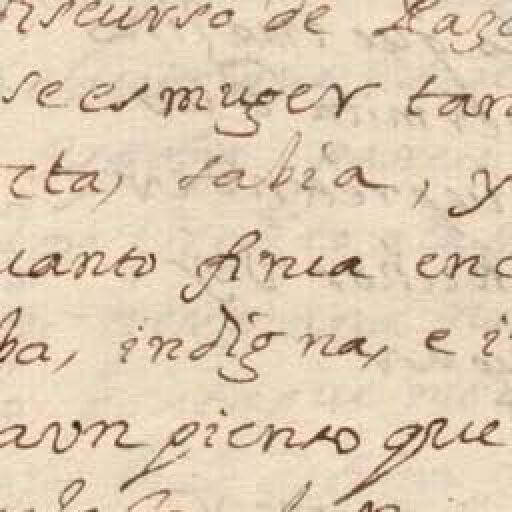 discurso de Razo
se es muger tan
cta, sabia, y
uanto finca enc
ba, indigna, e i
aun pienso que